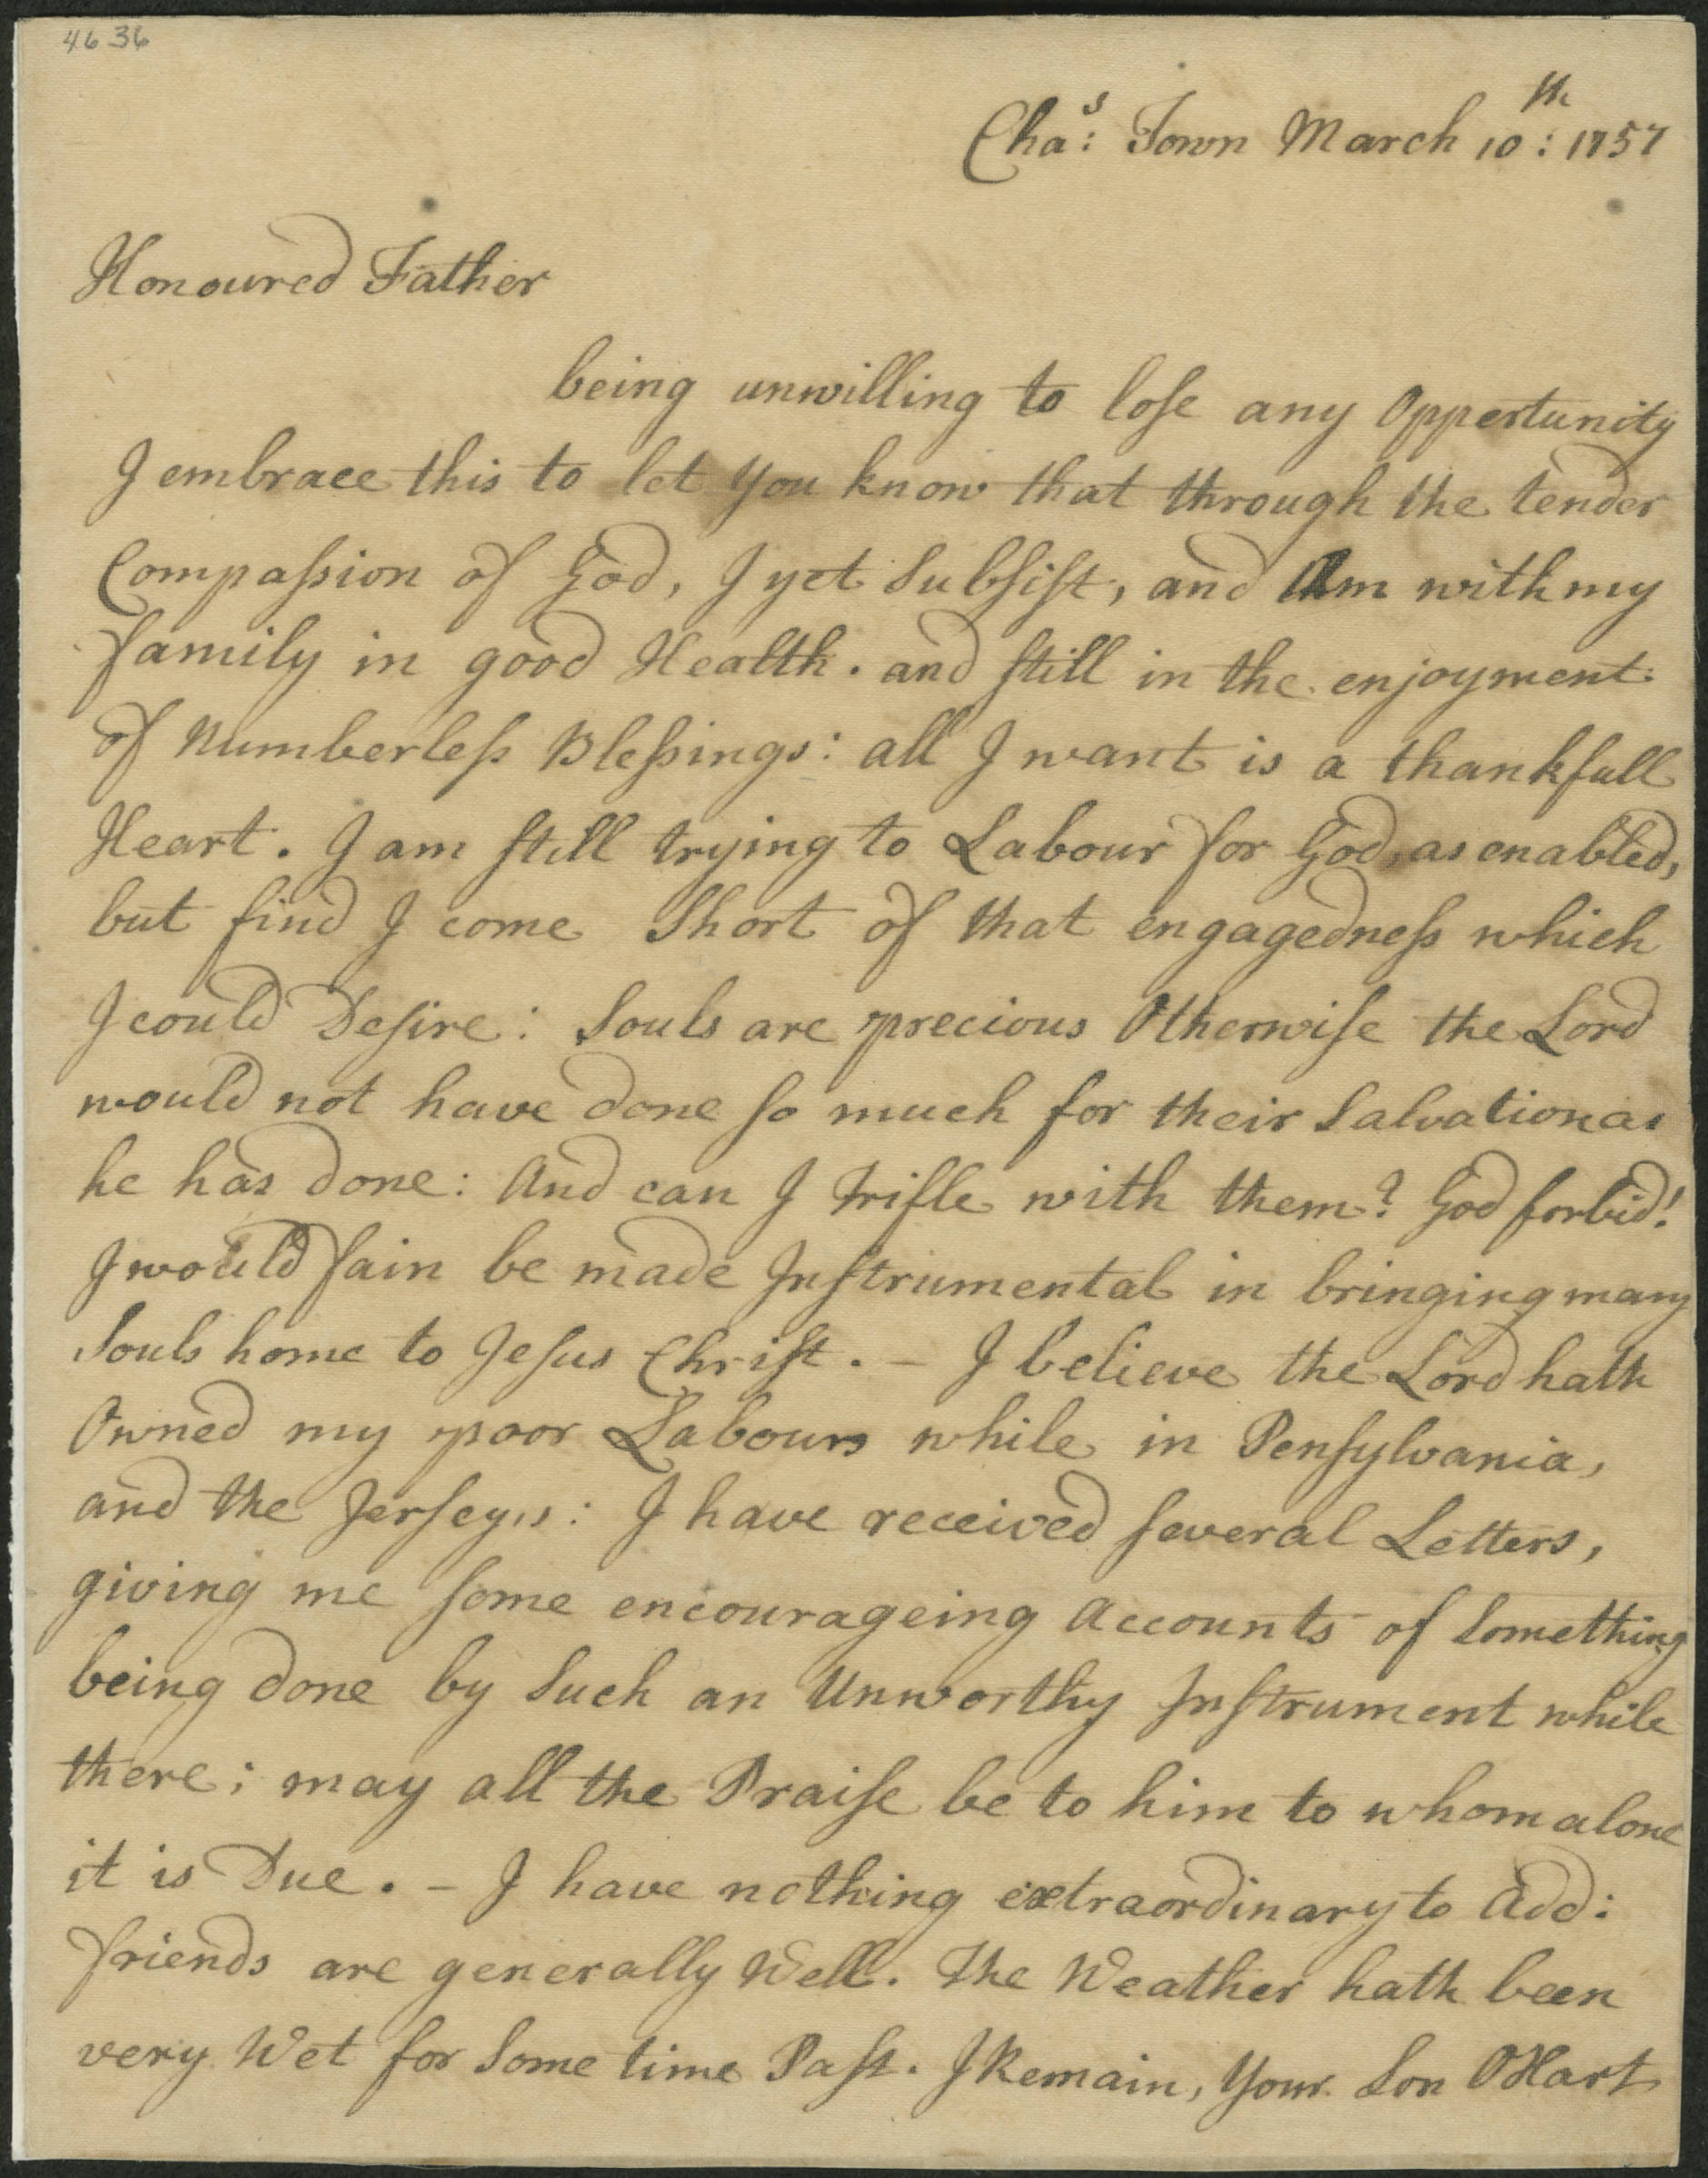 4636
Chas: Town March 10th: 1757
Honoured Father
being unwilling to lose any Oppertunity
I embrace this to let you know that through the tender
Compassion of God, I yet Subsist, and Am with my
family in good Health. and still in the enjoyment
of Numberless Blessings: all I want is a thankfull
Heart. I am still trying to Labour for God, as enabled,
but find I come Short of that engagedness which
I could Desire: Souls are precious Otherwise the Lord
would not have done so much for their Salvation as
he has done: And can I trifle with them? God forbid!
I would fain be made Instrumental in bringing many
Souls home to Jesus Christ. – I believe the Lord hath
Owned my poor Labours while in Pensylvania,
and the Jerseys: I have received several Letters,
giving me some encourageing Accounts of Something
being done by Such an Unworthy Instrument while
there; may all the Praise be to him to whom alone
it is Due. – I have nothing extraordinary to Add:
friends are generally Well. The Weather hath been
very Wet for Some time Past. I Remain, Your Son OHart